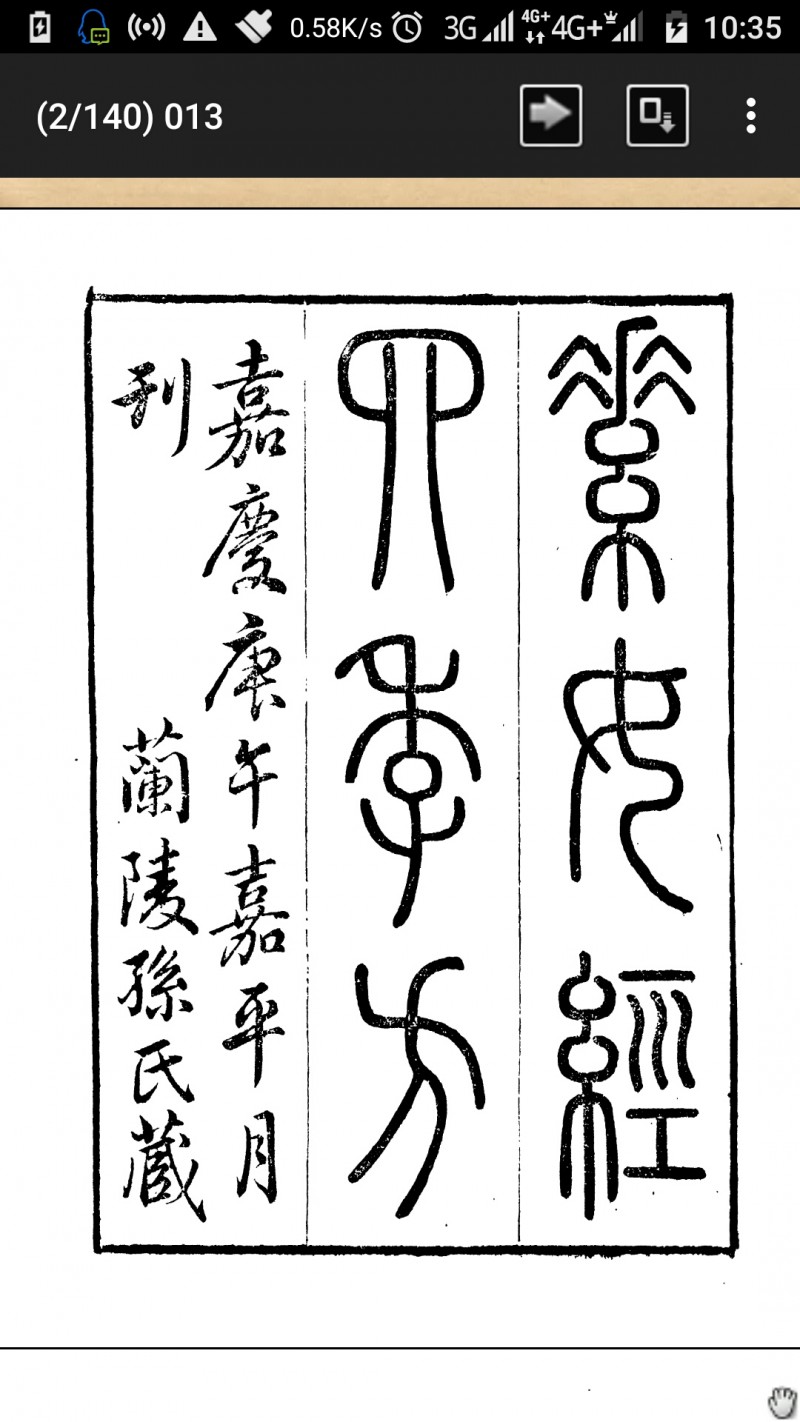 0.58K/s 3G 4G+ 4G+ 10:35
(2/140) 013
素女經
四季方
嘉慶庚午嘉平月
刊 蘭陵孫氏藏